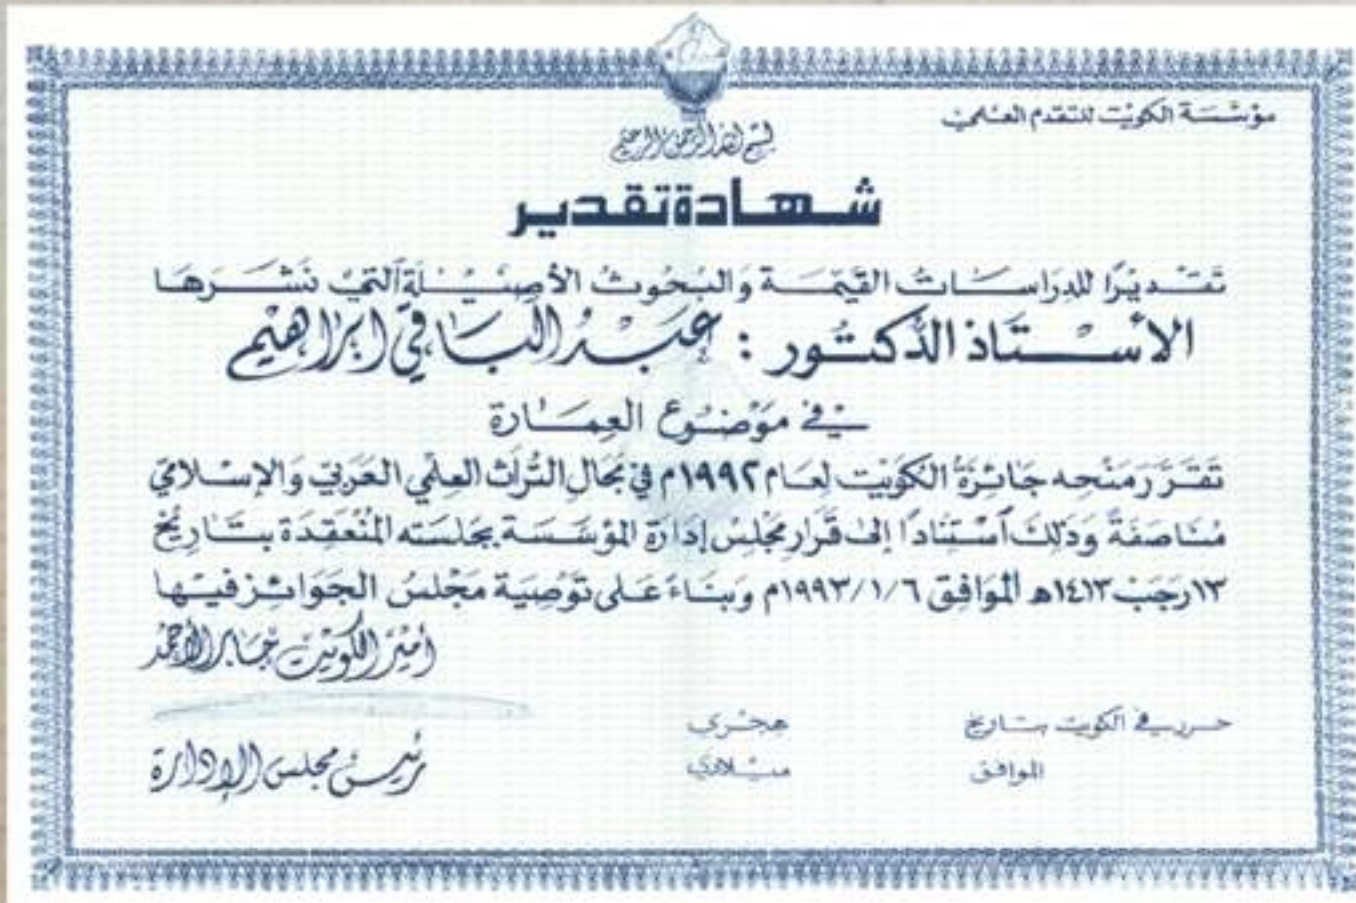 مؤسسة الكويت للتقدم العلمي
بسم الله الرحمن الرحيم
شهادة تقدير
تقديرًا للدراسات القيمة والبحوث الأصيلة التي نشرها
الأستاذ الدكتور : عبد الباقي ابراهيم
في موضوع العمارة
تقرر منحه جائزة الكويت لعام ١٩٩٢م في مجال التراث العلمي العربي والإسلامي
مناصفة وذلك استنادًا إلى قرار مجلس إدارة المؤسسة بجلسته المنعقدة بتاريخ
١٣ رجب ١٤١٣ھ الموافق ١٩٩٣/١/٦م وبناءً على توصية مجلس الجوائز فيها
أمير الكويت جابر الأحمد
حرر في الكويت بتاريخ هجرى
الموافق ميلادي
رئيس مجلس الإدارة